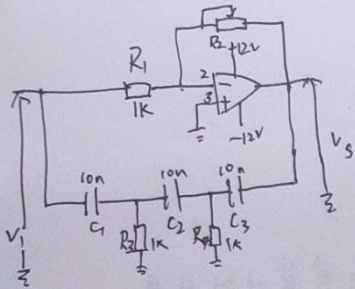 R2
+12V
R1
2
−
1K
3
+
−12V
VS
10n
10n
10n
C1
C2
C3
R3
1K
1K
V1